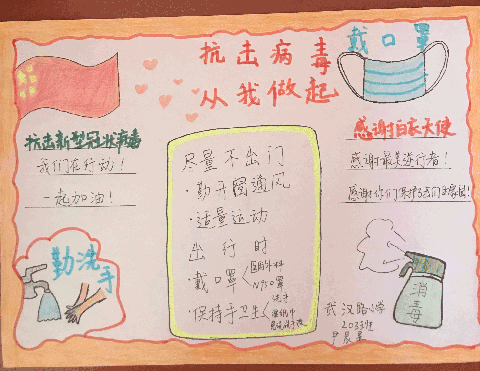 抗击病毒
从我做起
戴口罩
抗击新型冠状病毒
我们在行动!
一起加油!
勤洗手
尽量不出门
·勤开窗通风
·适量运动
出行时
·戴口罩
医用外科
N95口罩
·保持手卫生
洗手
感谢白衣天使
感谢最美逆行者!
消毒
武汉路小学